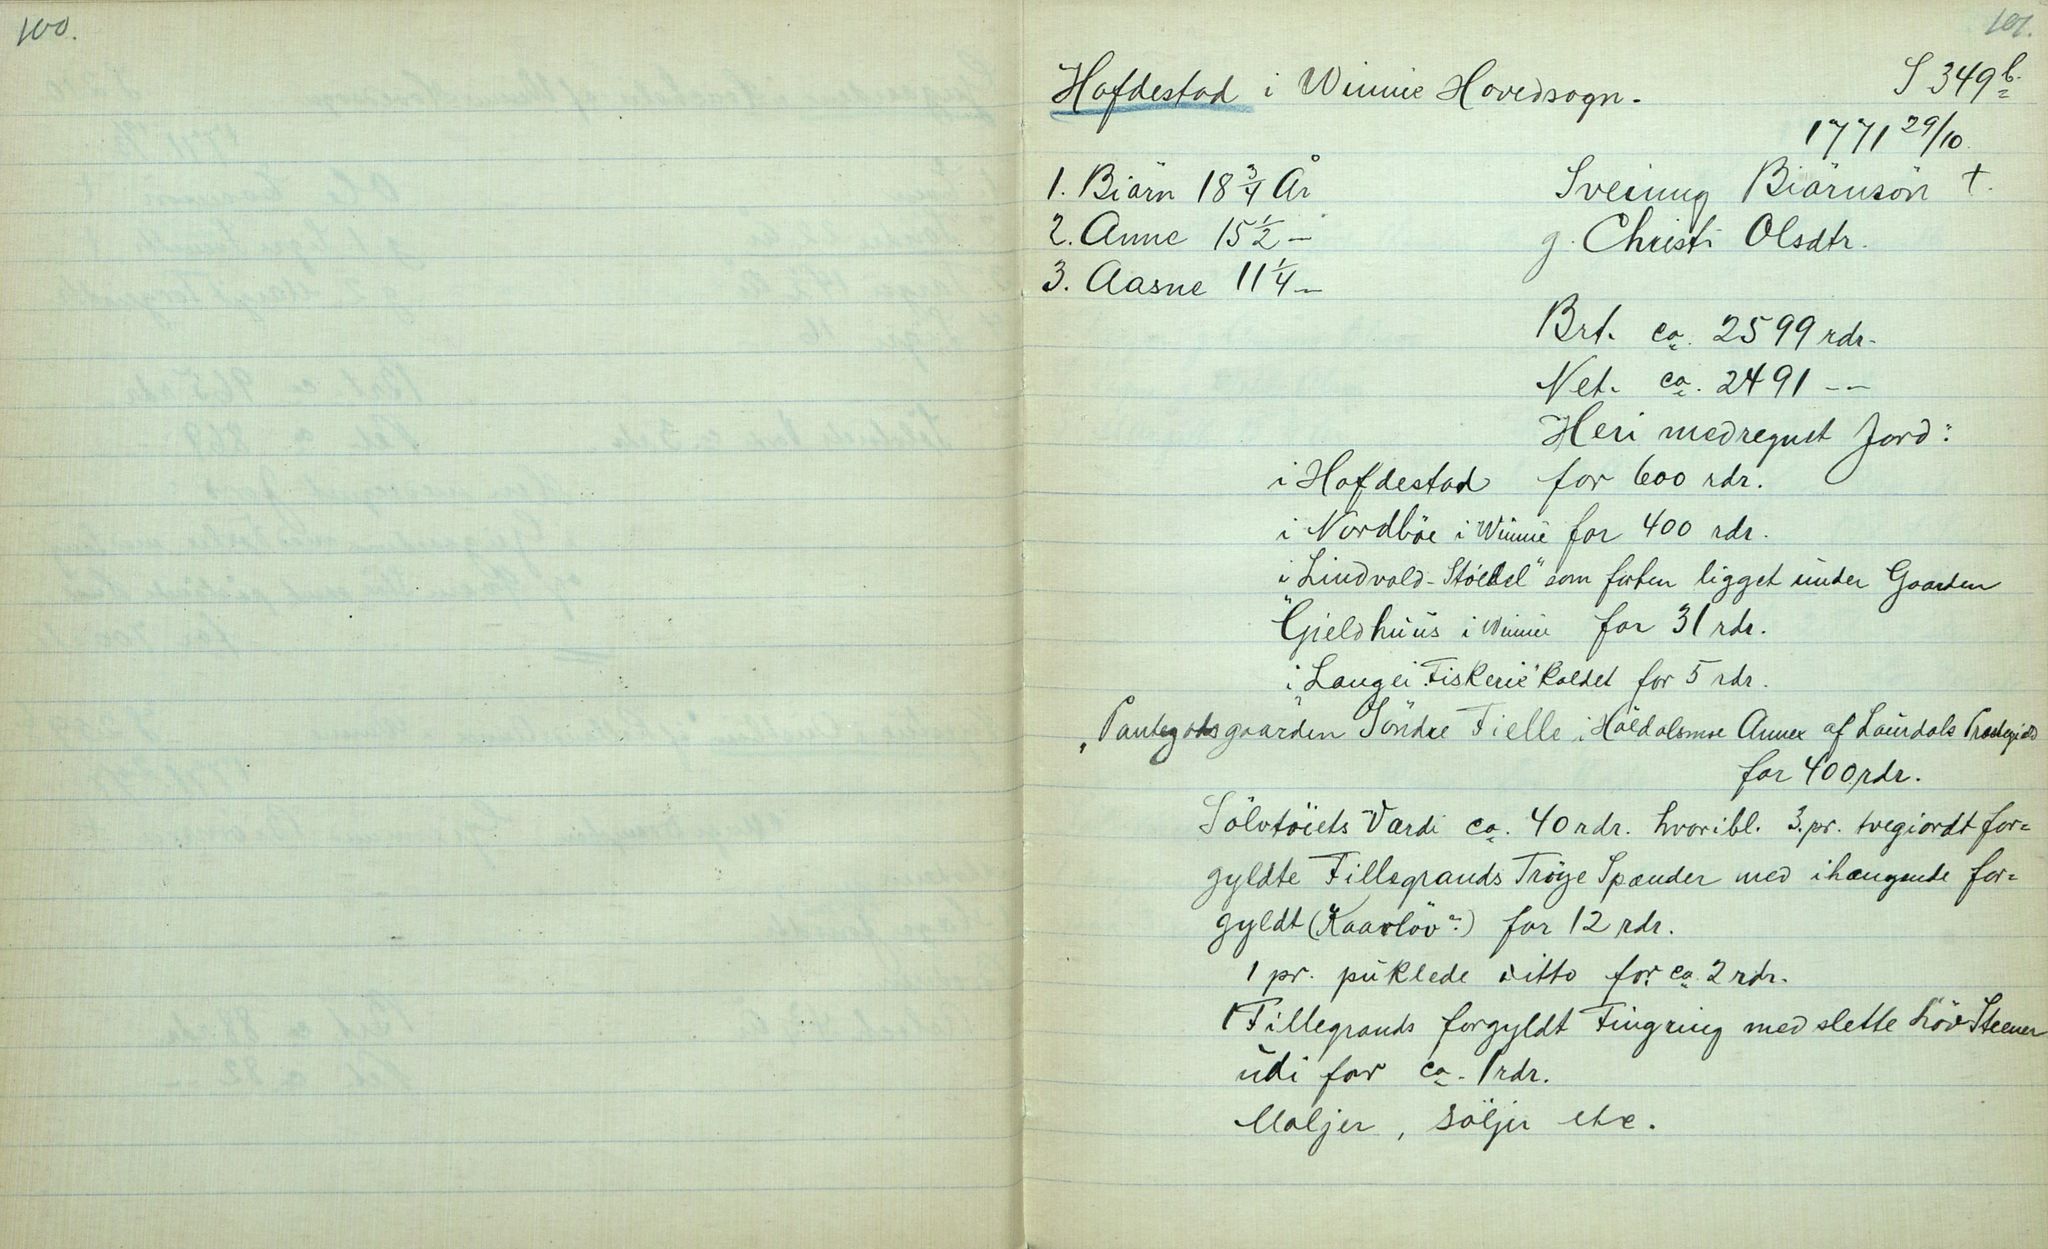 100.
101.
Hafdestad i Winnie Hovedsogn.
S 349 b.
1771 29/10.
1. Biørn 18 3/4 År
Sveinug Biørnsøn †.
2. Anne 15 1/2 —
g. Christi Olsdtr.
3. Aasne 11 1/4 —
Brt. ca. 2599 rdr.
Net. ca. 2491 --
Heri medregnet Jord:
i Hafdestad for 600 rdr.
i Nordbøe i Winnie for 400 rdr.
i "Lindvold-Støedel" som forhen ligget under Gaarden
"Gieldhuus i Winnie for 31 rdr.
i "Langei Fiskerie" kaldet for 5 rdr.
"Pantegodsgaarden Söndre Fielle i Høidalsmoe Annex af Laurdals Præstegield
for 400 rdr.
Sölvtöiets Værdi ca. 40 rdr. hvoribl. 3. pr. tvegiordt for=
gyldte Fillegrands Tröye Spænder med ihængende for=
gyldt (Kaarlöv"?) for 12 rdr.
1 pr. puklede ditto for ca 2 rdr.
1 Fillegrands forgyldt Fingring med slette Löv Steener
udi for ca. 1 rdr.
Maljer, söljer etc.